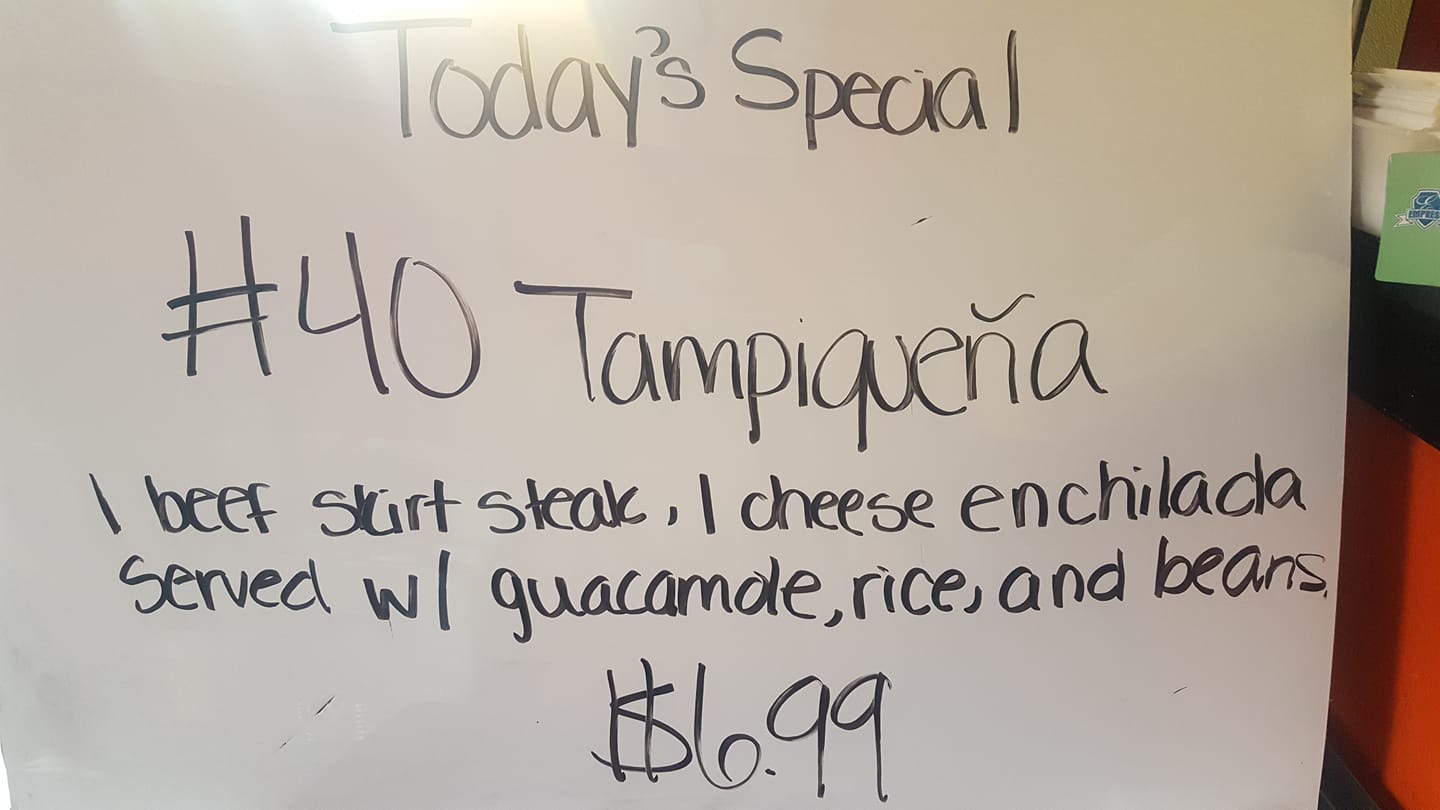 Today's Special
#40 Tampiqueña
1 beef skirt steak, 1 cheese enchilada
Served w/ guacamole, rice, and beans.
$6.99